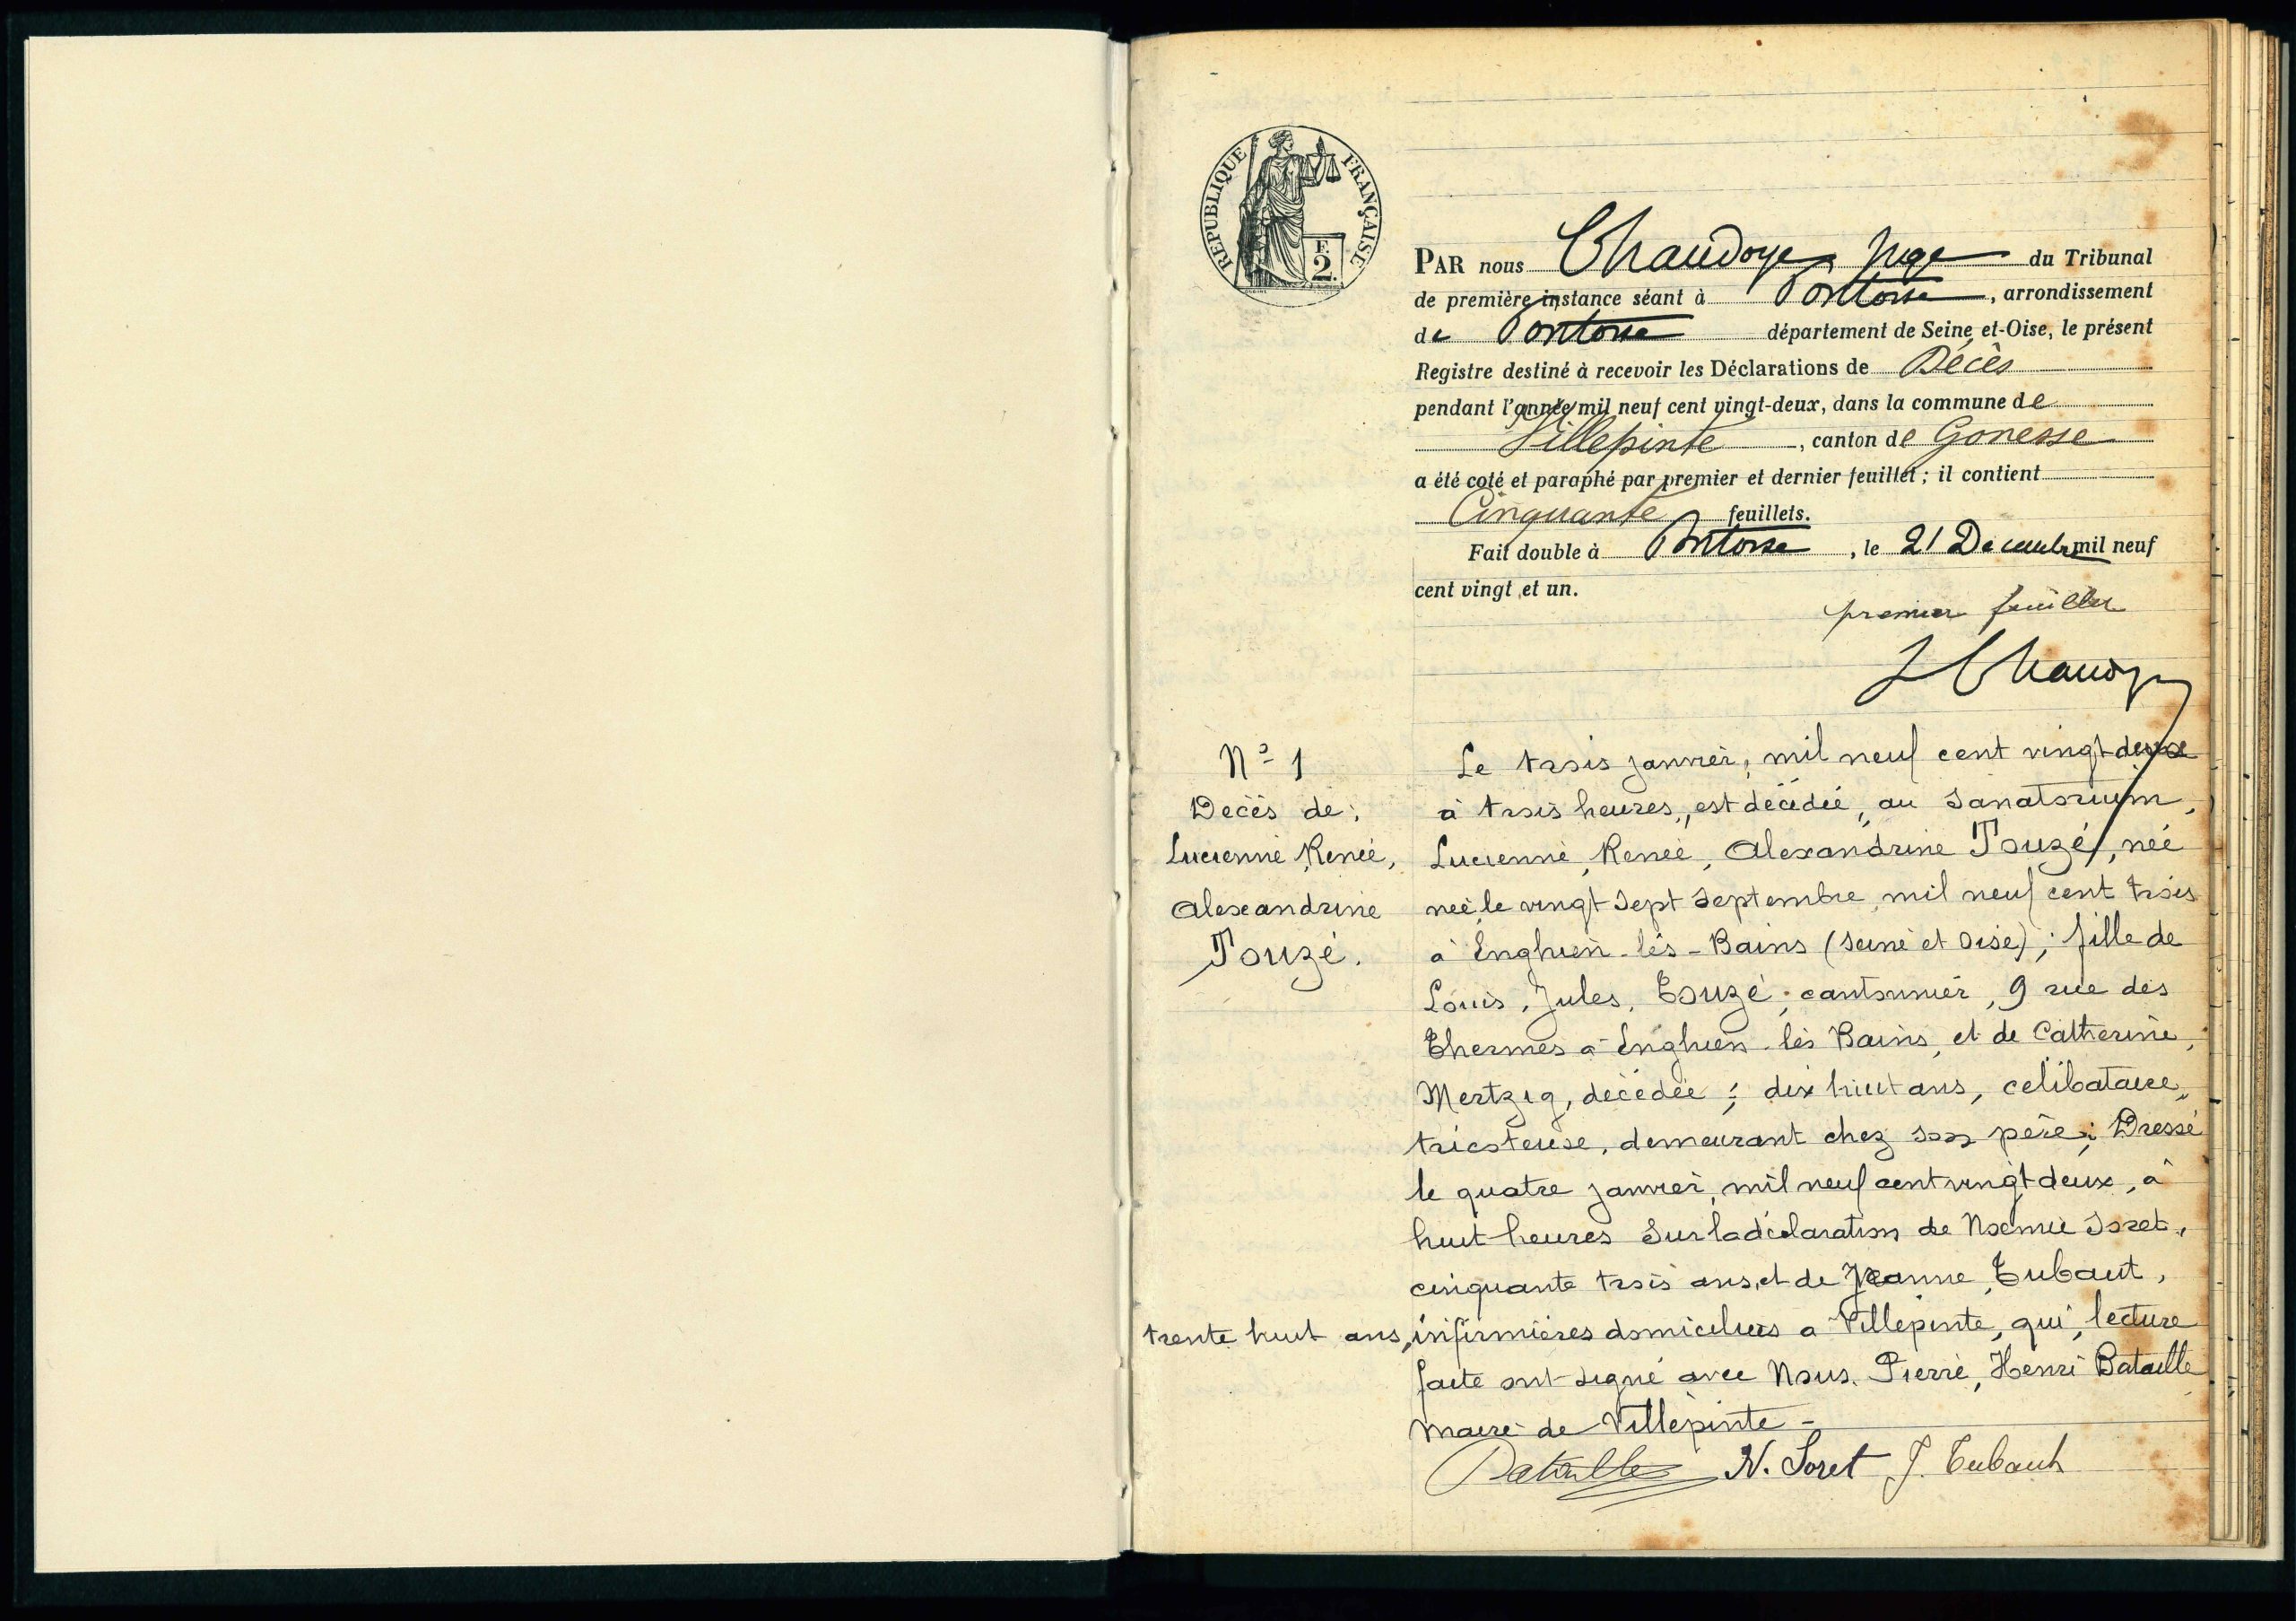 REPUBLIQUE FRANÇAISE
F.
2.
PAR nous Chaudoye, Juge du Tribunal
de première instance séant à Pontoise, arrondissement
de Pontoise département de Seine-et-Oise, le présent
Registre destiné à recevoir les Déclarations de Décès
pendant l'année mil neuf cent vingt-deux, dans la commune de
Villepinte, canton de Gonesse
a été coté et paraphé par premier et dernier feuillet; il contient
Cinquante feuillets.
Fait double à Pontoise, le 21 Decembre mil neuf
cent vingt et un.
premier feuillet
Nº 1
Decès de:
Lucienne, Renée,
Alexandrine
Touzé.
Le trois janvier, mil neuf cent vingt deux
à trois heures, est décédée, au Sanatorium,
Lucienne, Renée, Alexandrine Touzé, née
née, le vingt sept septembre, mil neuf cent trois
à Enghien-les-Bains (Seine et Oise); fille de
Louis, Jules, Touzé; cantonnier, 9 rue des
Thermes à Enghien les Bains, et de Catherine,
Mertzig, décédée; dix huit ans, celibataire,
tricoteuse, demeurant chez son père; Dressé
le quatre janvier, mil neuf cent vingt deux, à
huit heures Sur la déclaration de Noémie Soret,
cinquante trois ans, et de Jeanne, Tubaut,
trente huit ans, infirmières domiciliées a Villepinte, qui, lecture
faite ont signé avec Nous. Pierre, Henri Bataille
Maire de Villepinte -
Bataille N. Soret J. Tubaut